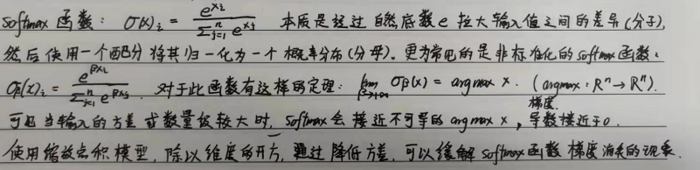 softmax 函数: σ(x)_i = e^{x_i} / Σ_{j=1}^{n} e^{x_j} 本质是经过自然底数e拉大输入值之间的差异(分子),
然后使用一个配分将其归一化为一个概率分布(分母). 更为常见的是非标准化的softmax函数:
σ_β(x)_i = e^{βx_i} / Σ_{j=1}^{n} e^{βx_j} . 对于此函数有这样的定理: lim_{β→+∞} σ_β(x) = argmax x. (argmax: R^n → R^n).
可见当输入的方差或数量级较大时, softmax会接近不可导的 argmax x, 梯度 导数接近于0.
使用缩放点积模型, 除以维度的开方, 通过降低方差, 可以缓解softmax函数梯度消失的现象.